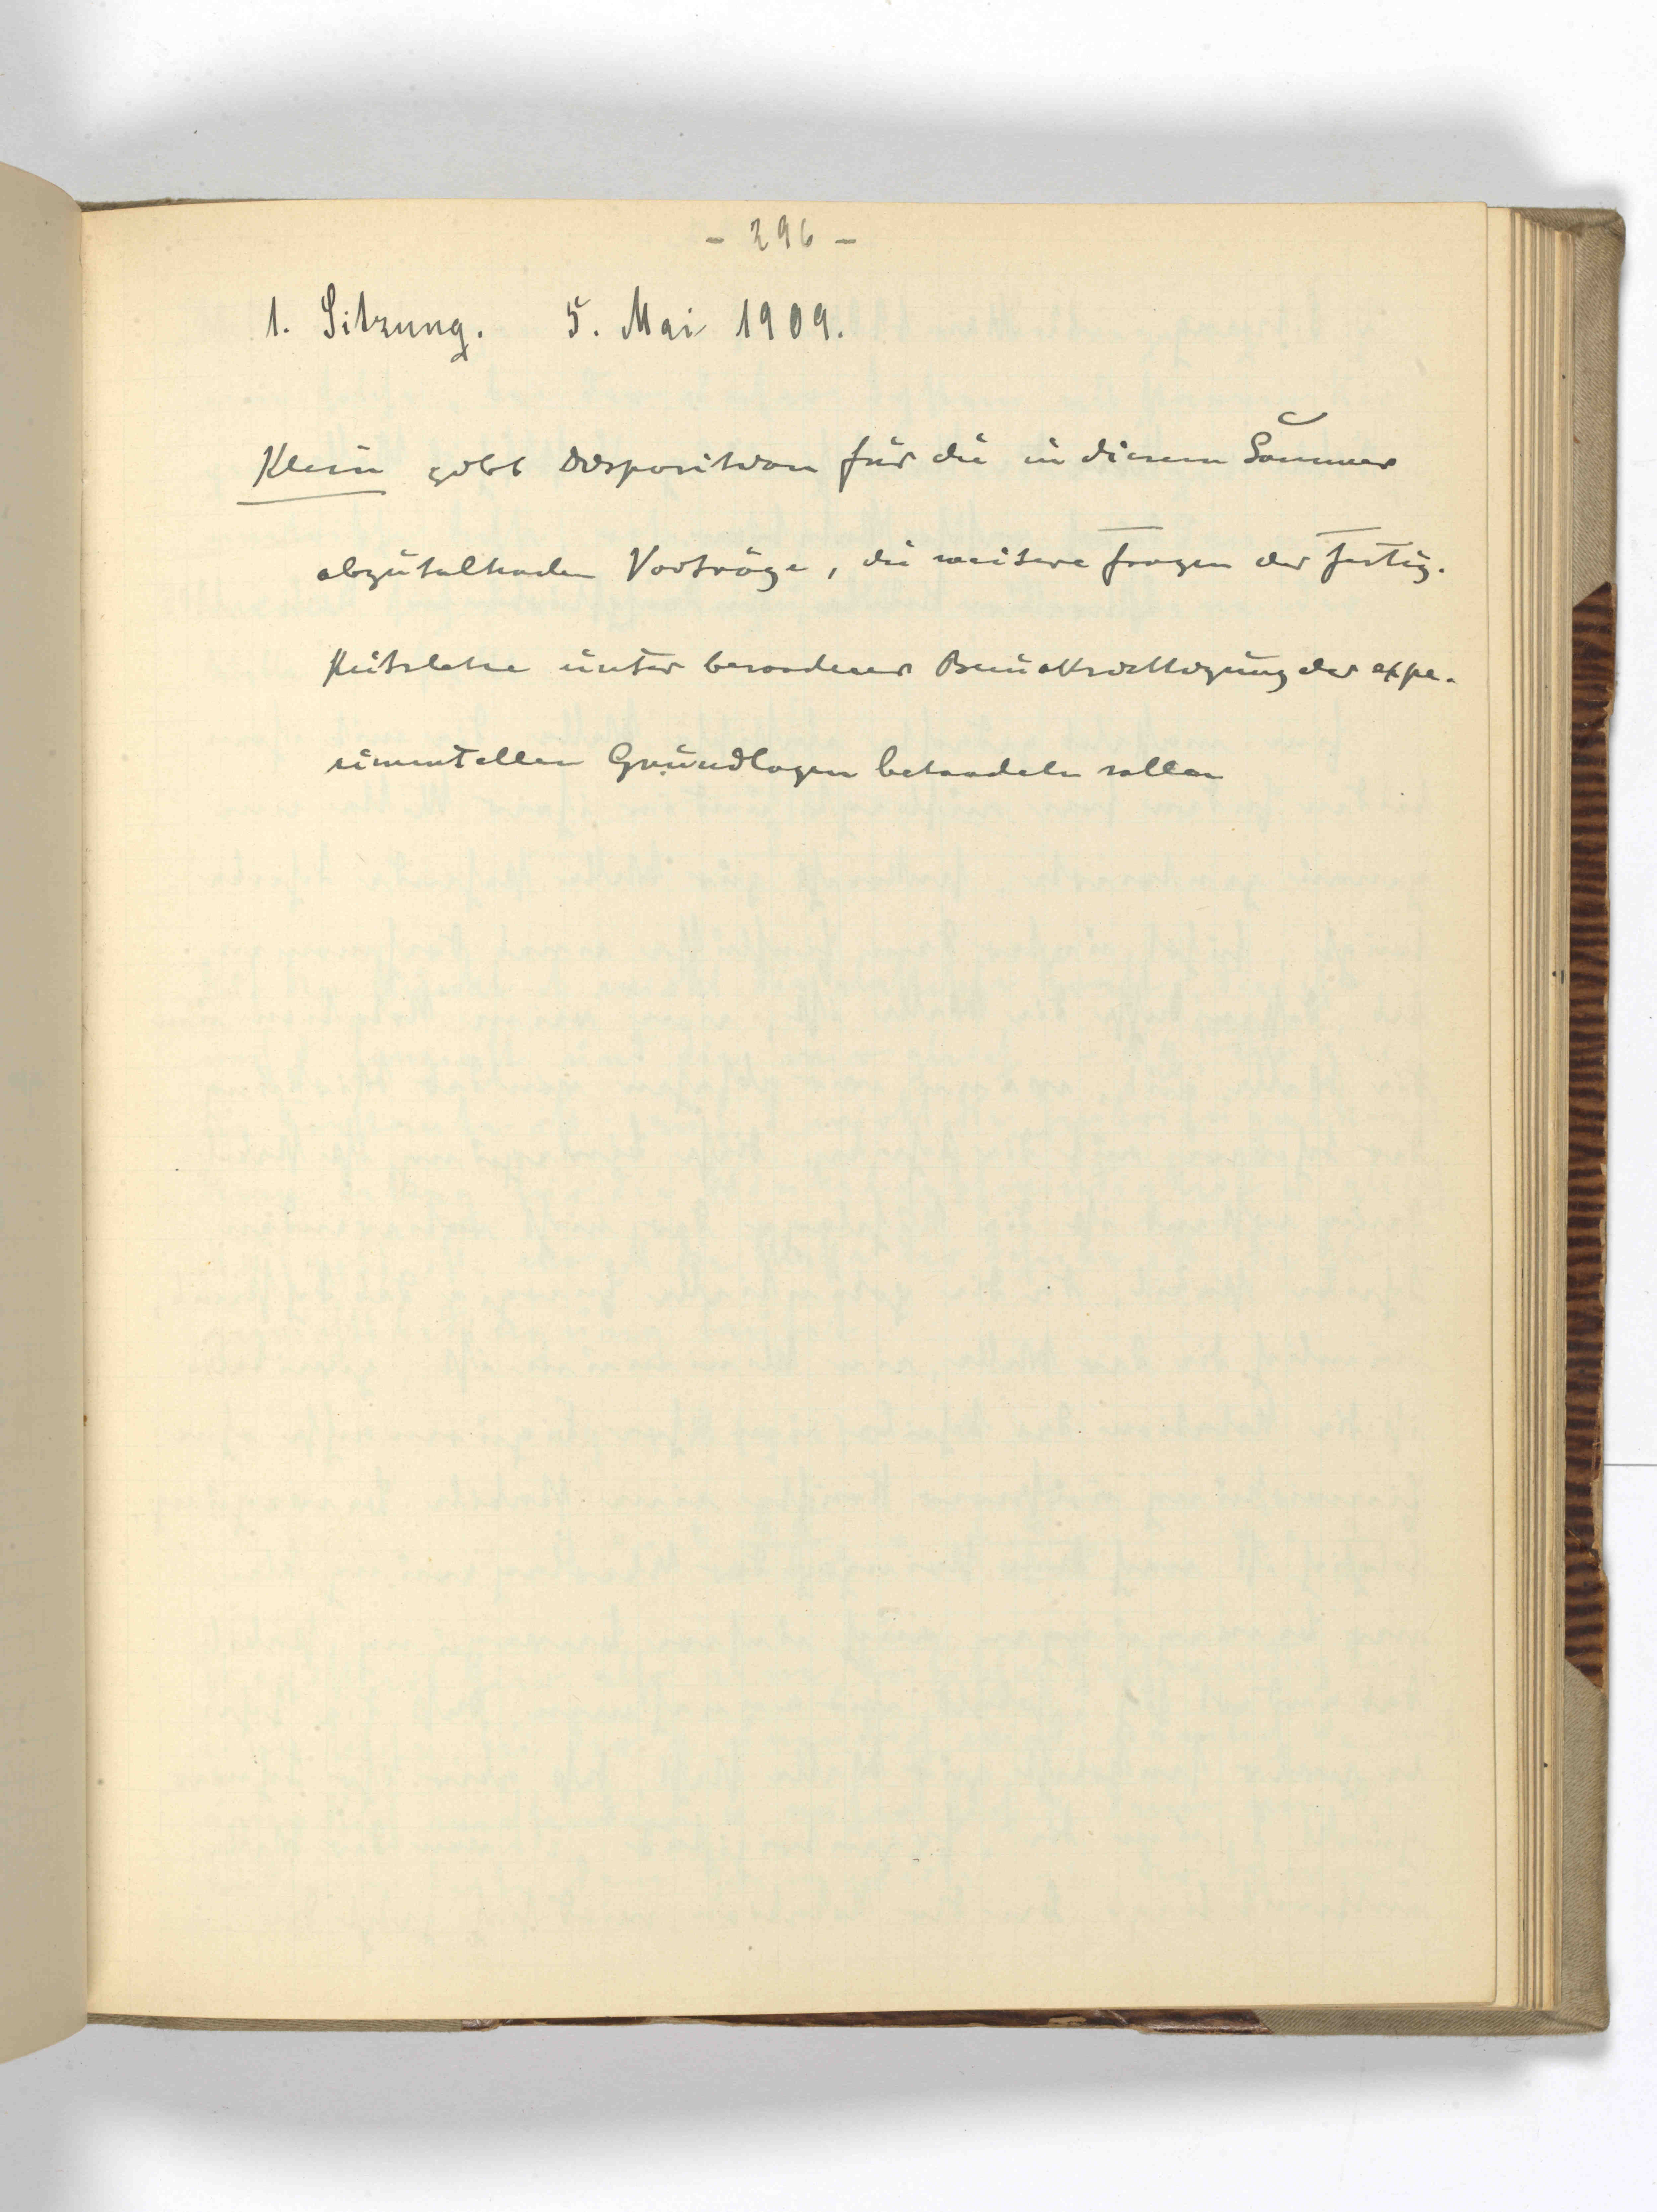 - 296 -
1. Sitzung. 5. Mai 1909.
Klein gibt Disposition für die in diesem Sommer
abzuhaltenden Vorträge, die weitere Fragen der Festig-
keitslehre unter besonderer Berücksichtigung der expe-
rimentellen Grundlagen behandeln sollen